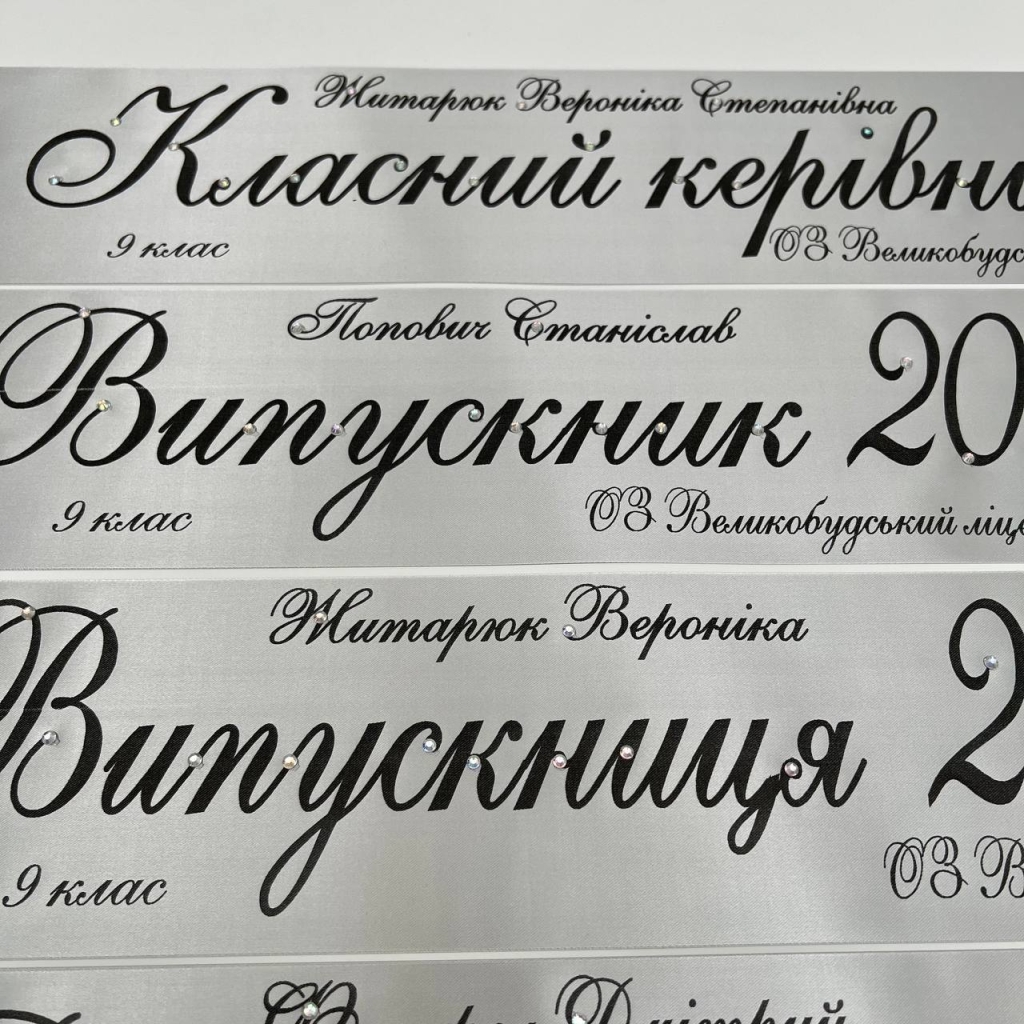 Житарюк Вероніка Степанівна
Класний керівни
9 клас
ОЗ Великобудс
Попович Станіслав
Випускник 20
9 клас
ОЗ Великобудський ліце
Житарюк Вероніка
Випускниця 2
9 клас
ОЗ В
Дмітрий